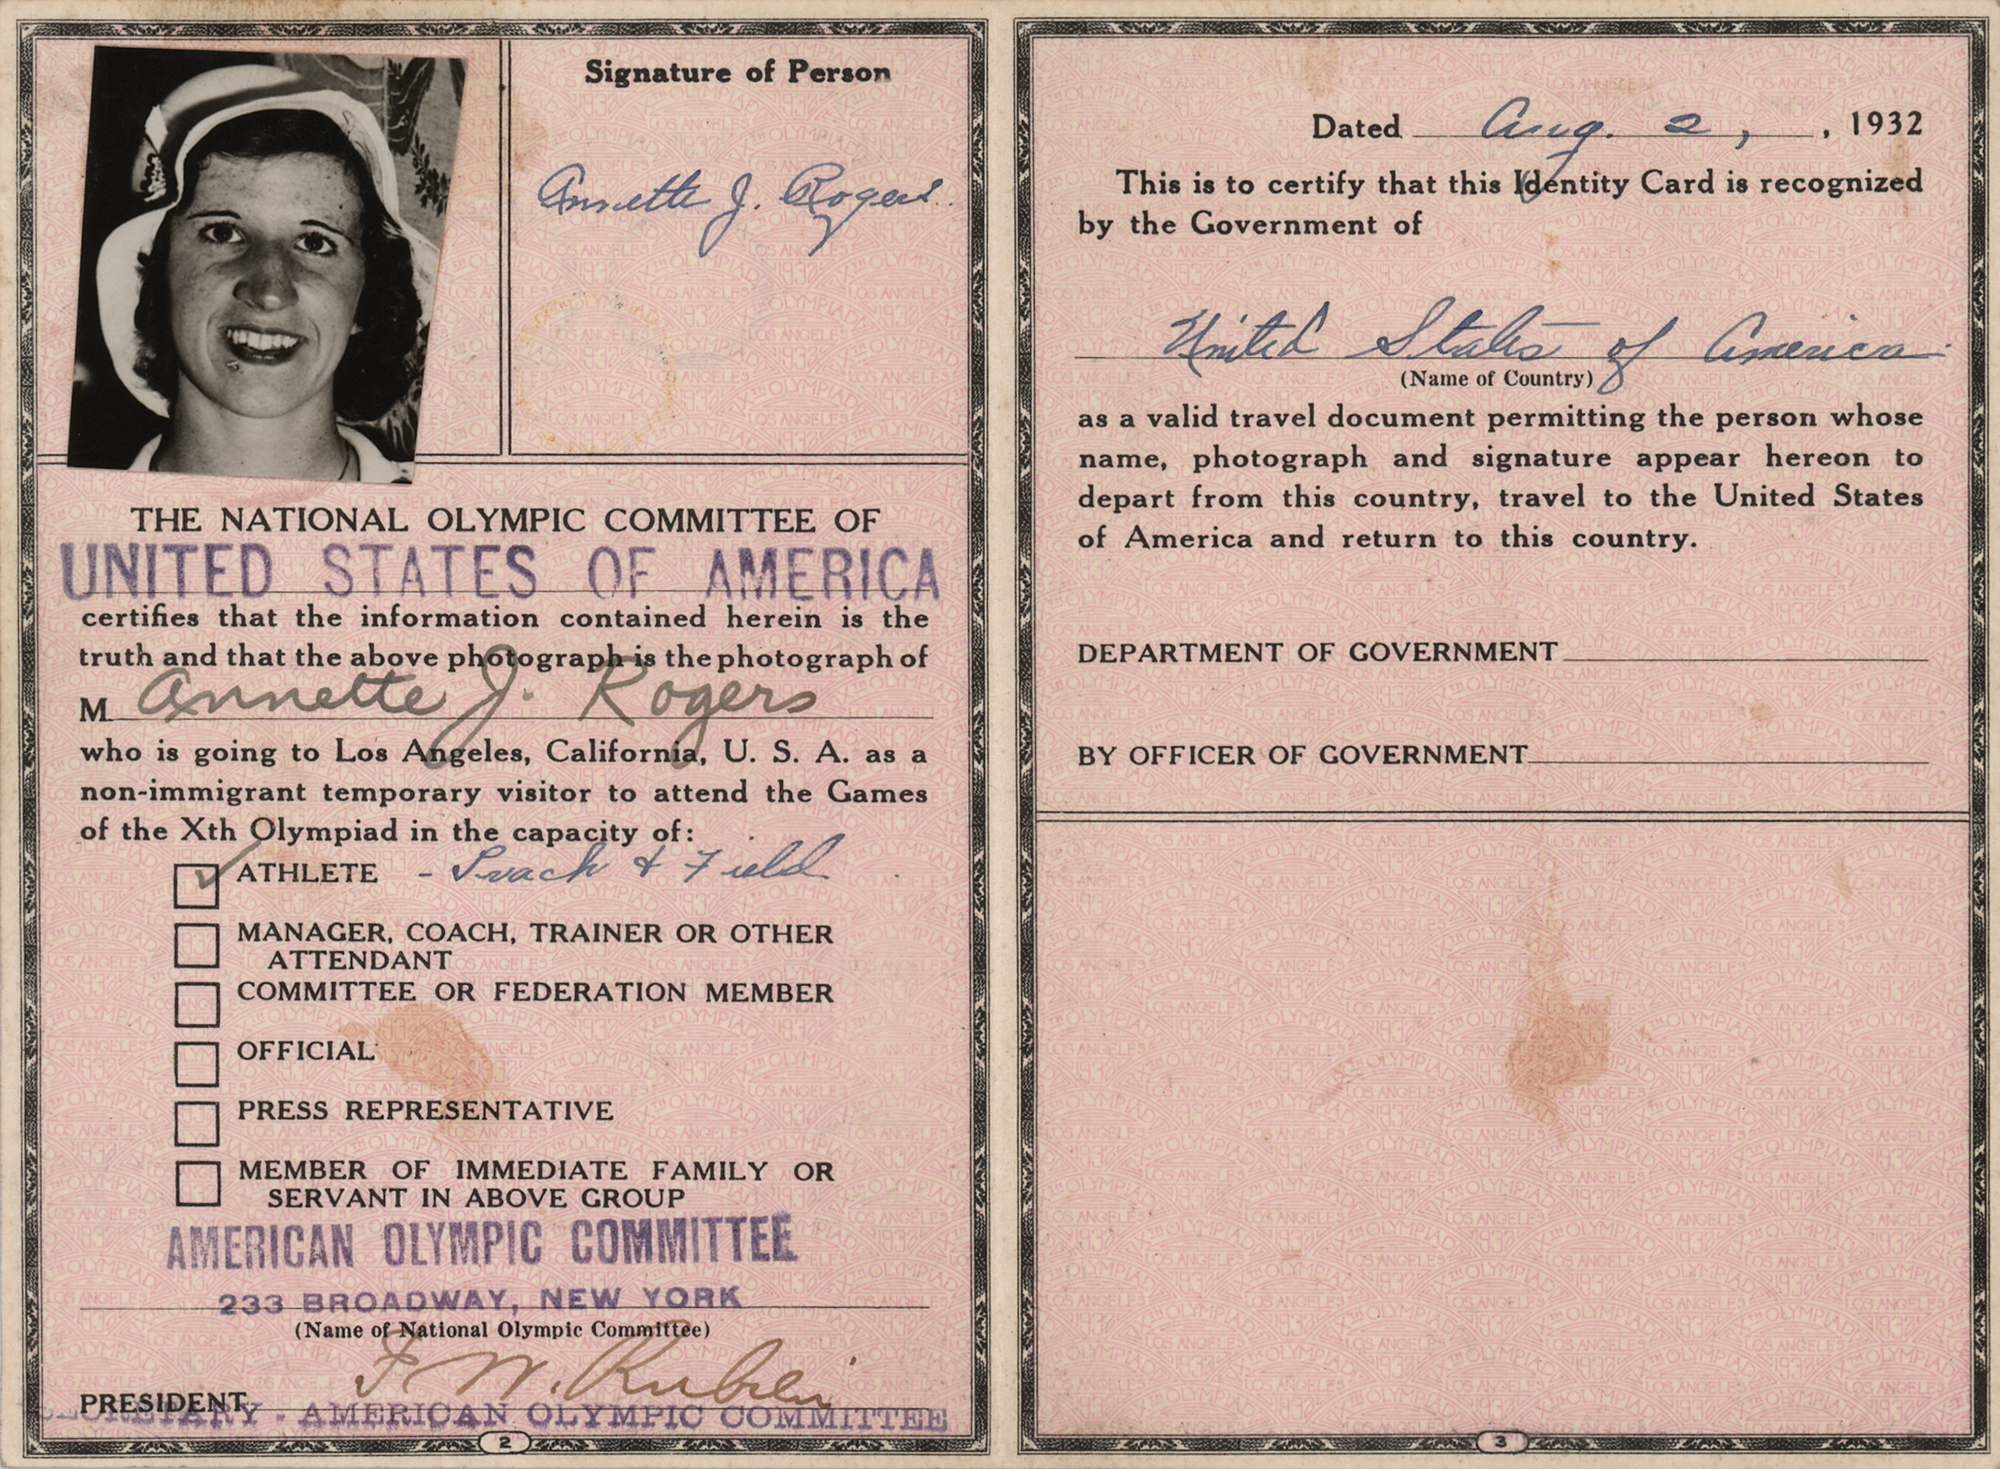 Signature of Person
Annette J. Rogers.
THE NATIONAL OLYMPIC COMMITTEE OF
UNITED STATES OF AMERICA
certifies that the information contained herein is the
truth and that the above photograph is the photograph of
M Annette J. Rogers
who is going to Los Angeles, California, U. S. A. as a
non-immigrant temporary visitor to attend the Games
of the Xth Olympiad in the capacity of:
ATHLETE - Track & Field
MANAGER, COACH, TRAINER OR OTHER
ATTENDANT
COMMITTEE OR FEDERATION MEMBER
OFFICIAL
PRESS REPRESENTATIVE
MEMBER OF IMMEDIATE FAMILY OR
SERVANT IN ABOVE GROUP
AMERICAN OLYMPIC COMMITTEE
233 BROADWAY, NEW YORK
(Name of National Olympic Committee)
F. W. Rubien
PRESIDENT
SECRETARY - AMERICAN OLYMPIC COMMITTEE
2
Dated Aug. 2, , 1932
This is to certify that this Identity Card is recognized
by the Government of
United States of America
(Name of Country)
as a valid travel document permitting the person whose
name, photograph and signature appear hereon to
depart from this country, travel to the United States
of America and return to this country.
DEPARTMENT OF GOVERNMENT
BY OFFICER OF GOVERNMENT
3